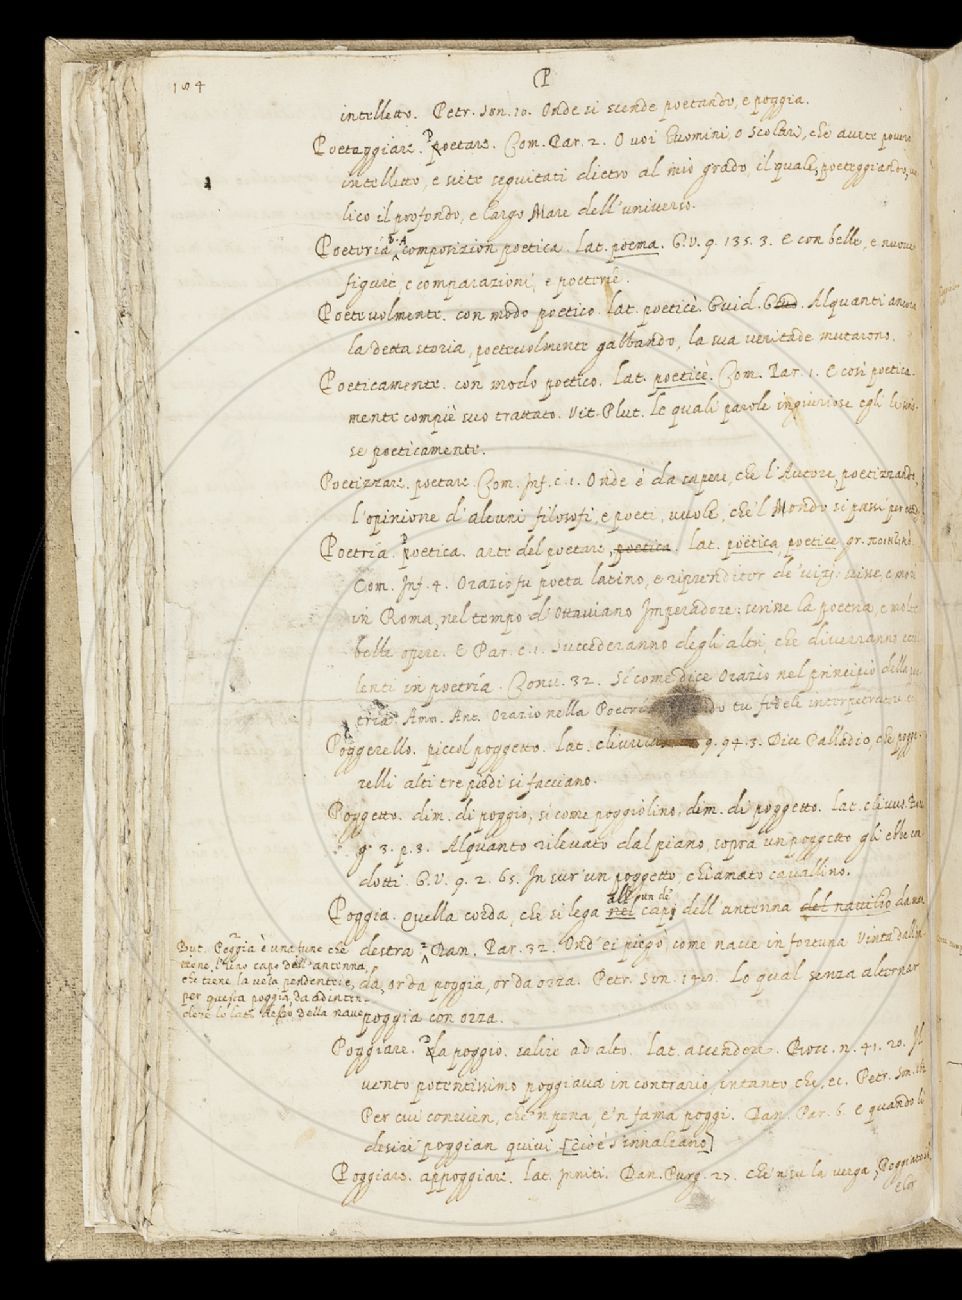 184
P
intelletto. Petr. Son. 10. Onde si scende poetando, e poggia.
Poeteggiare. Poetare. Com. Par. 2. O voi huomini, o scolari, che avete povero
intelletto, e siete seguitati dietro al mio grado, il quale, poeteggiando,
lico il profondo, e largo Mare dell'universo.
Poetería composizion poetica. lat. poema. G. V. 9. 135. 3. E con belle, e nuove
figure, e comparazioni, e poeterie.
Poetevolmente. con modo poetico. lat. poeticè. Guid. Giud. Alquanti ancora
la detta storia, poetevolmente gabbando, la sua veritade mutarono.
Poeticamente. con modo poetico. lat. poeticè. Com. Par. 1. E così poetica-
mente compiè suo trattato. Vit. Plut. le quali parole ingiuriose egli
se poeticamente.
Poetizzare. poetare. Com. Inf. c. 1. Onde è da sapere, che l'Autore, poetizzando,
l'opinione d'alcuni filosofi, e poeti, vuole, che'l Mondo si passi per
Poetría. poetica. arte del poetare, poetica. lat. poëtica, poetice, gr.
Com. Inf. 4. Orazio fu poeta latino, e riprenditor de' vizj: visse, e morì
in Roma, nel tempo d'Ottaviano Imperadore: scrisse la poetria, e molte
belle opere. E Par. c. 1. Succederanno degli altri, che diverranno
lenti in poetría. Conv. 32. Si come dice Orazio nel principio della
tría. Amm. Ant. Orazio nella Poetria tu fedele interpetratore
Poggerello. piccol poggetto. lat. 9. 94. 3. Dice Palladio, che pogge-
relli alti tre piedi si facciano.
Poggetto. dim. di poggio, si come poggiolino, dim. di poggetto. lat. clivus.
g. 3. p. 3. Alquanto rilevato dal piano, sopra un poggetto gli ebbe
dotti. G. V. 9. 2. 65. In sur un poggetto, chiamato cavallino.
all' un de'
Poggia. Quella corda, che si lega nel capi dell'antenna del navilio da man
destra Dan. Par. 32. Ond' ei piegò, come nave in fortuna Vinta dall'on-
da, or da poggia, or da orza. Petr. Son. Lo qual senza alternar
poggia con orza.
But. Poggia è una fune che
tiene l'uno capo dell'antenna,
che tiene la vela pendente, e
per questa poggia, da ad inten-
dere lo lato destro della nave
Poggiare. da poggio. salire ad alto. lat. ascendere. Bocc. n. 41. 20. Il
vento potentissimo poggiava in contrario, intanto che, ec. Petr. Son.
Per cui convien, che 'n pena, e 'n fama poggi. Dan. Par. 6. e quando li
desiri poggian quivi [cioè s'innalzano]
Poggiare. appoggiare. lat. inniti. Dan. Purg. 27. che 'n su la verga, Poggiato